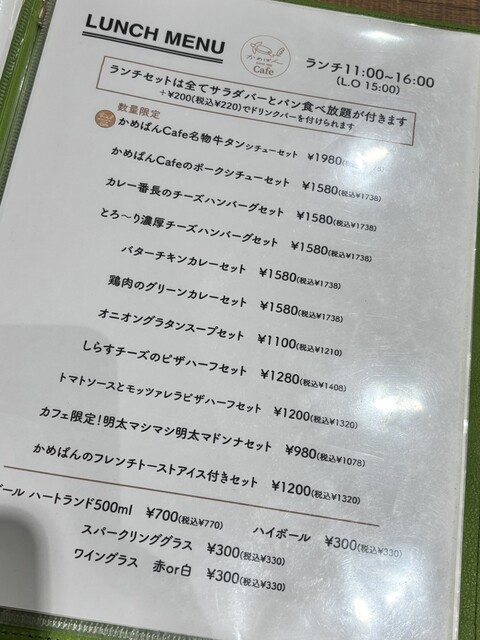 LUNCH MENU
かめぱん
Cafe
ランチ11:00~16:00
(L.O 15:00)
ランチセットは全てサラダバーとパン食べ放題が付きます
+¥200(税込¥220)でドリンクバーを付けられます
数量限定
かめぱんCafe名物牛タンシチューセット ¥1980
かめぱんCafeのポークシチューセット ¥1580(税込¥1738)
カレー番長のチーズハンバーグセット ¥1580(税込¥1738)
とろ〜り濃厚チーズハンバーグセット ¥1580(税込¥1738)
バターチキンカレーセット ¥1580(税込¥1738)
鶏肉のグリーンカレーセット ¥1580(税込¥1738)
オニオングラタンスープセット ¥1100(税込¥1210)
しらすチーズのピザハーフセット ¥1280(税込¥1408)
トマトソースとモッツァレラピザハーフセット ¥1200(税込¥1320)
カフェ限定!明太マシマシ明太マドンナセット ¥980(税込¥1078)
かめぱんのフレンチトーストアイス付きセット ¥1200(税込¥1320)
ール ハートランド500ml ¥700(税込¥770) ハイボール ¥300(税込¥330)
スパークリンググラス ¥300(税込¥330)
ワイングラス 赤or白 ¥300(税込¥330)